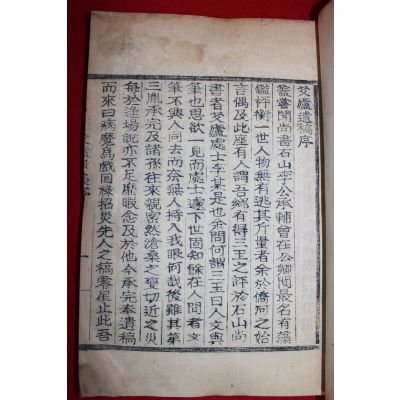 芟廬遺稿序
蓋嘗聞尚書石山李公承輔曾在公卿間最名有藻
鑑評衡一世人物無有逃其斤量者余於僑河之始
言偶及此座有人謂吾鄉有得三玉之評於石山尚
書者芟廬處士李某是也余問何謂三玉曰人文與
筆也思欲一見而處士遽下世固知餘在人間者文
筆不與人同去而奈無人持入我眼何哉後雖其第
三胤承完及諸孫往來親密然滄桑之變切近之災
每於逢場說亦不足靡暇念及於他今承完奉遺稿
而來曰病魔爲戲回祿招災先人之稿零星止此吾